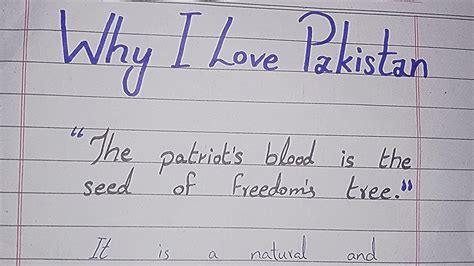 Why I Love Pakistan
"The patriot's blood is the
seed of freedom's tree."
It is a natural and